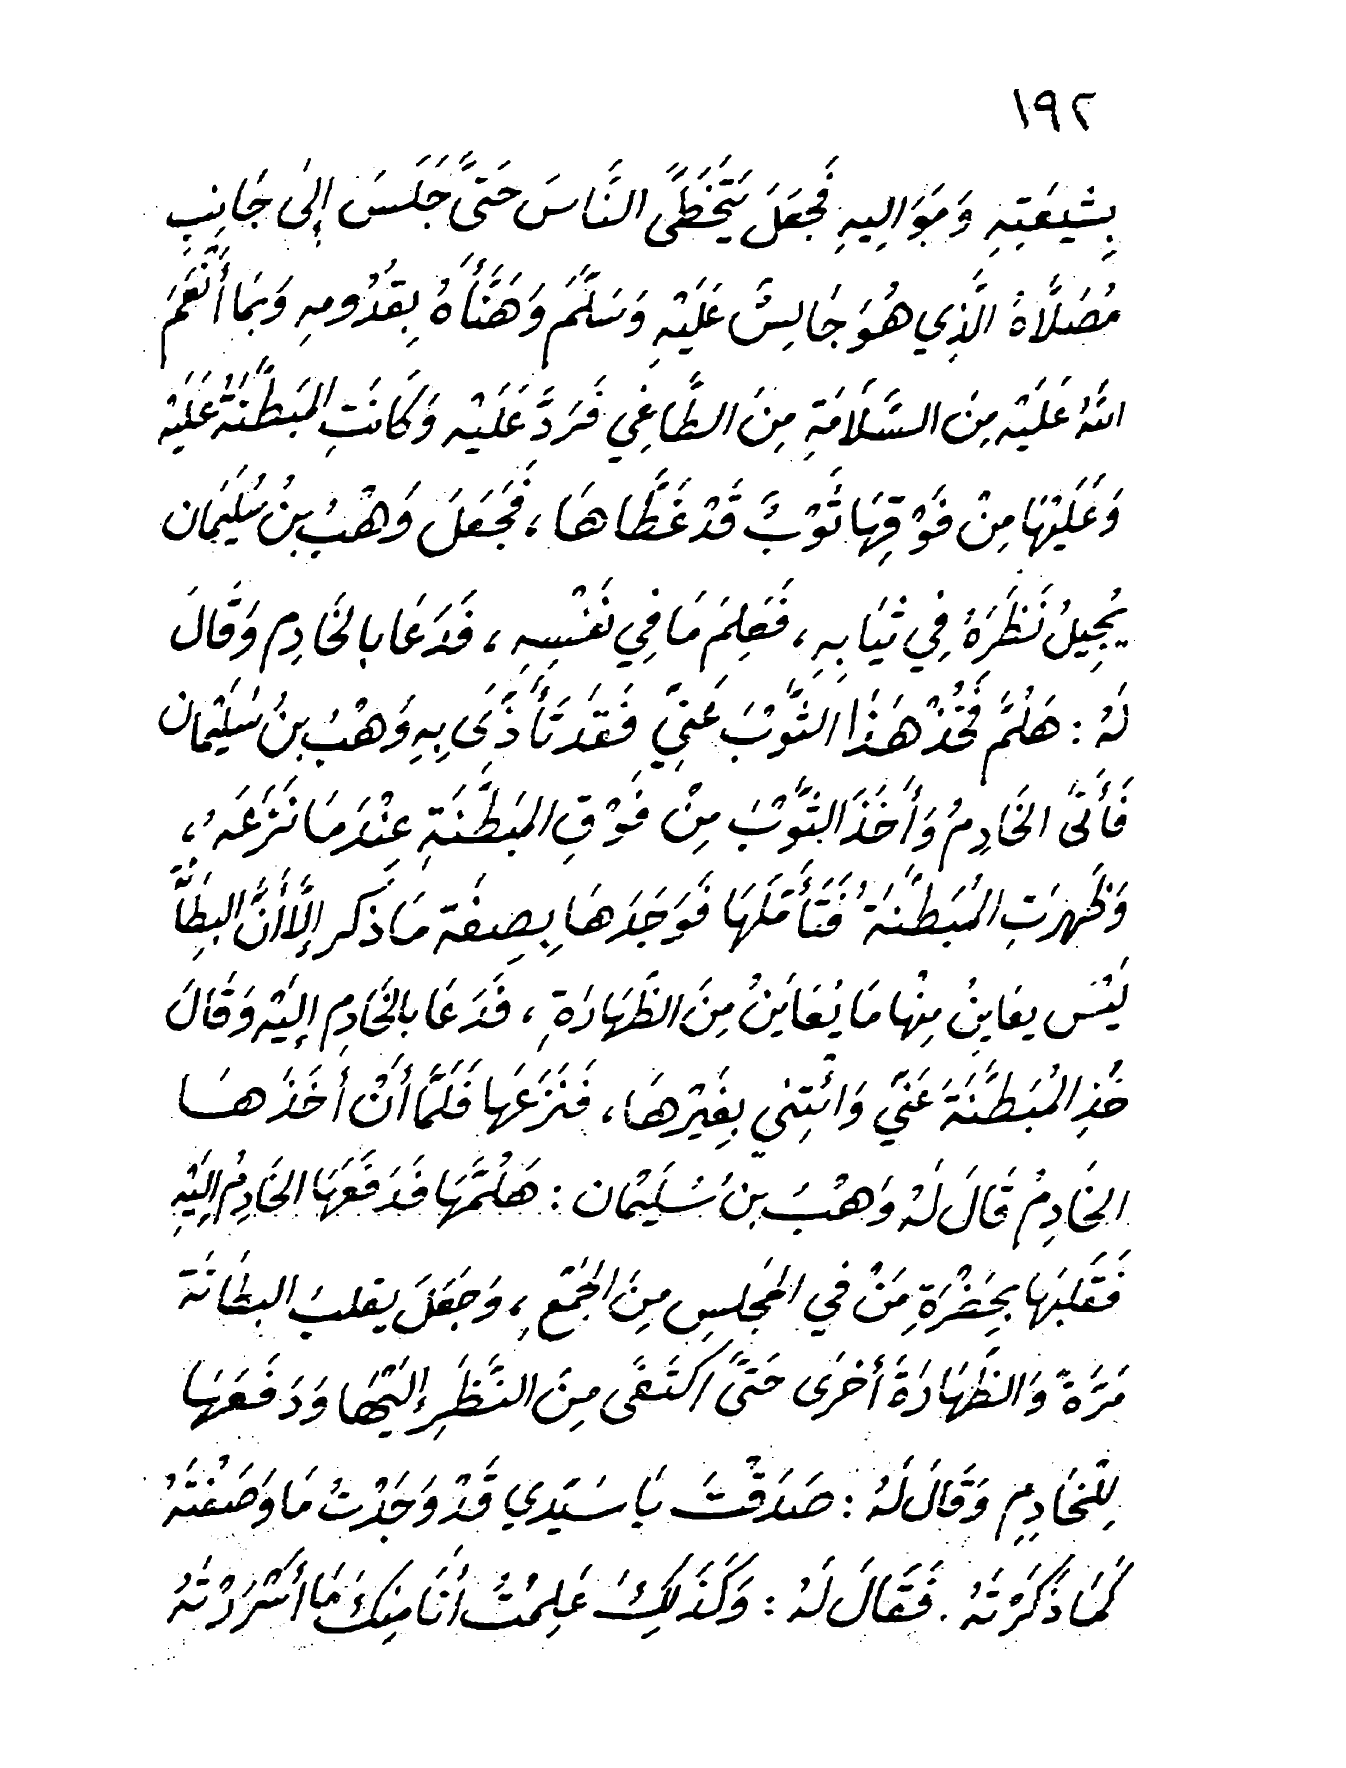 ١٩٢
بِشِيعَتِهِ وَمَوَالِيهِ فَجَعَلَ يَتَخَطَّى النَّاسَ حَتَّى جَلَسَ إِلَى جَانِبِ
مُصَلَّاهُ الَّذِي هُوَ جَالِسٌ عَلَيْهِ وَسَلَّمَ وَهَنَّأَهُ بِقُدُومِهِ وَبِمَا أَنْعَمَ
اللهُ عَلَيْهِ مِنَ السَّلَامَةِ مِنَ الطَّاغِي فَرَدَّ عَلَيْهِ وَكَانَتِ المُبَطَّنَةُ عَلَيْهِ
وَعَلَيْهَا مِنْ فَوْقِهَا ثَوْبٌ قَدْ غَطَّاهَا ، فَجَعَلَ وَهْبُ بنُ سُلَيْمَان
يُجِيلُ نَظَرَهُ فِي ثِيَابِهِ ، فَعَلِمَ مَا فِي نَفْسِهِ ، فَدَعَا بِالخَادِمِ وَقَالَ
لَهُ : هَلُمَّ فَخُذْ هَذَا الثَّوْبَ عَنِّي فَقَدْ تَأَذَّى بِهِ وَهْبُ بنُ سُلَيْمَان
فَأَتَى الخَادِمُ وَأَخَذَ الثَّوْبَ مِنْ فَوْقِ المُبَطَّنَةِ عِنْدَمَا نَزَعَهُ ،
وَظَهَرَتِ المُبَطَّنَةُ فَتَأَمَّلَهَا فَوَجَدَهَا بِصِفَة مَا ذَكر إلَّا أَنَّ البِطَانَةَ
لَيْسَ يعَاينُ مِنْهَا مَا يُعَايَنُ مِنَ الظَّهَارَةِ ، فَدَعَا بالخَادِمِ إلَيْهِ وَقَالَ
خُذِ المُبَطَّنَةَ عَنِّي وَائْتِنِي بِغَيْرِهَا ، فَنَزَعَهَا فَلَمَّا أَنْ أَخَذَهَا
الخَادِمُ قَالَ لَهُ وَهْبُ بنُ سُلَيْمَان : هَلُمَّهَا فَدَفَعَهَا الخَادِمُ إِلَيْهِ
فَقَلَبَهَا بِحَضْرَةِ مَنْ فِي المَجلِسِ مِنَ الجَمْعِ ، وَجَعَلَ يقلبُ البطَانَةَ
مَرَّةً وَالظَّهَارَةَ أُخرَى حَتَّى اكتَفَى مِنَ النَّظَرِ إلَيْهَا وَدَفَعَهَا
لِلْخَادِمِ وَقَالَ لَهُ : صَدَقْتَ يَا سَيِّدي قَدْ وَجَدْتُ مَا وَصَفْتَهُ
كَمَا ذَكَرْتَهُ . فَقَالَ لَهُ : وَكَذَلِكَ عَلِمْتُ أَنَا مِنكَ مَا أَسْرَرْتَهُ